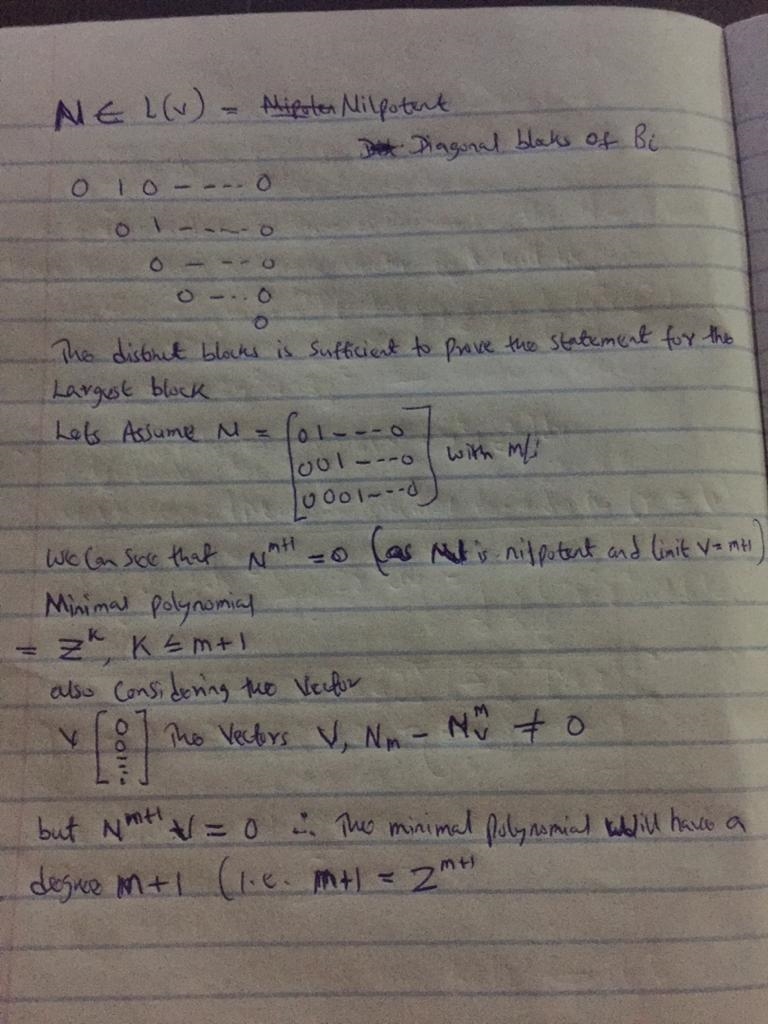 N ∈ L(v) = Nilpotent
Diagonal blocks of Bi
0 1 0 ---- 0
0 1 ---- 0
0 --- 0
0 --- 0
0
The distinct blocks is sufficient to prove the statement for the
Largest block
Lets Assume N = [01---0
001---0
0001---0] with
We can see that N^m+1 = 0 (as is nilpotent and limit V = m+1)
Minimal polynomial
= Z^K, K ≤ m+1
also considering the Vector
V [0
0
⋮] The Vectors V, Nm - N^m v ≠ 0
but N^m+1 V = 0 ∴ The minimal polynomial will have a
degree m+1 (i.e. m+1 = Z^m+1